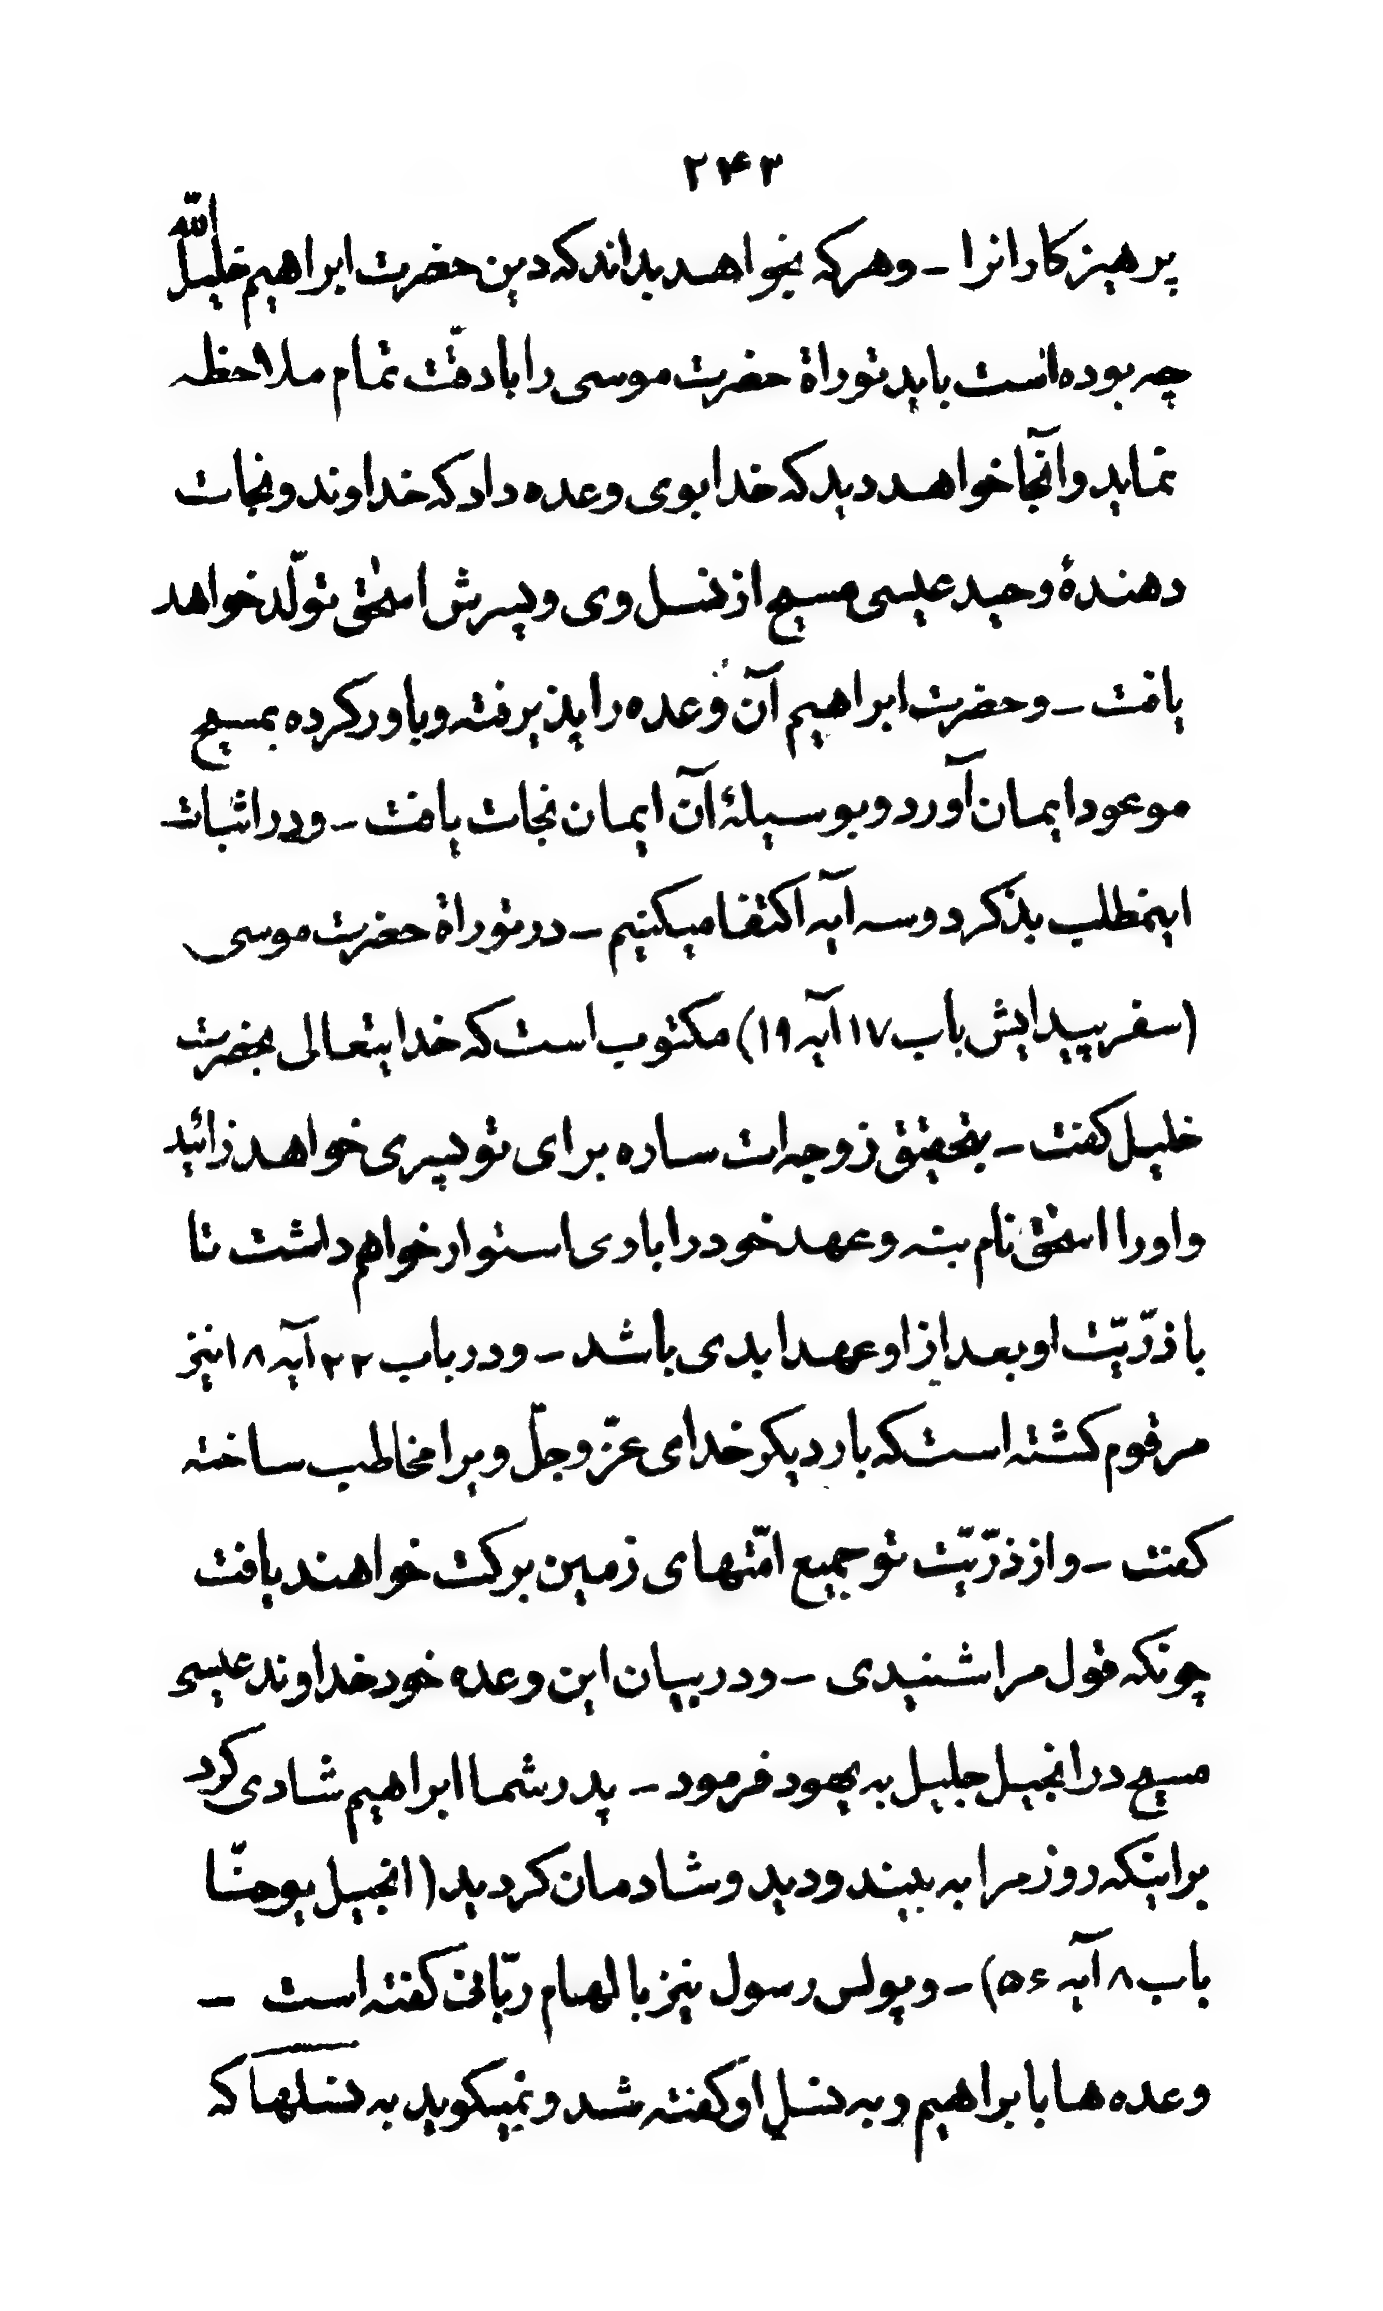 ۲۴۳
پرهیز کارانرا - و هرکه بخواهد بداند که دین حضرت ابراهیم خلیل الله
چه بوده است باید توراة حضرت موسی را با دقّت تمام ملاحظه
نماید و آنجا خواهد دید که خدا بوی وعده داد که خداوند و نجات
دهندۀ وحید عیسی مسیح از نسل وی و پسرش اسحٰق تولّد خواهد
یافت - و حضرت ابراهیم آن وعده را پذیرفته و باور کرده بمسیح
موعود ایمان آورد و بوسیلۀ آن ایمان نجات یافت - و در اثبات
اینمطلب بذکر دو سه آیه اکتفا میکنیم - در توراة حضرت موسی
(سفر پیدایش باب ۱۷ آیه ۱۹) مکتوب است که خدایتعالی بحضرت
خلیل کفت - بتحقیق زوجه ات ساره برای تو پسری خواهد زائید
و اورا اسحٰق نام بنه و عهد خود را با وی استوار خواهم داشت تا
با ذرّیّت او بعد از او عهد ابدی باشد - و در باب ۲۲ آیه ۱۸ نیز
مرقوم کشته است که بار دیکر خدای عزّ و جلّ ویرا مخاطب ساخته
کفت - و از ذرّیّت تو جمیع امّتهای زمین برکت خواهند یافت
چونکه قول مرا شنیدی - و در بیان این وعده خود خداوند عیسی
مسیح در انجیل جلیل به یهود فرمود - پدر شما ابراهیم شادی کرد
براینکه روز مرا به بیند و دید و شادمان کردید (انجیل یوحنّا
باب ۸ آیه ۵۶) - و پولس رسول نیز با لهام ربّانی کفته است -
وعده ها با براهیم و به نسل او کفته شد و نمیکوید به نسلها که